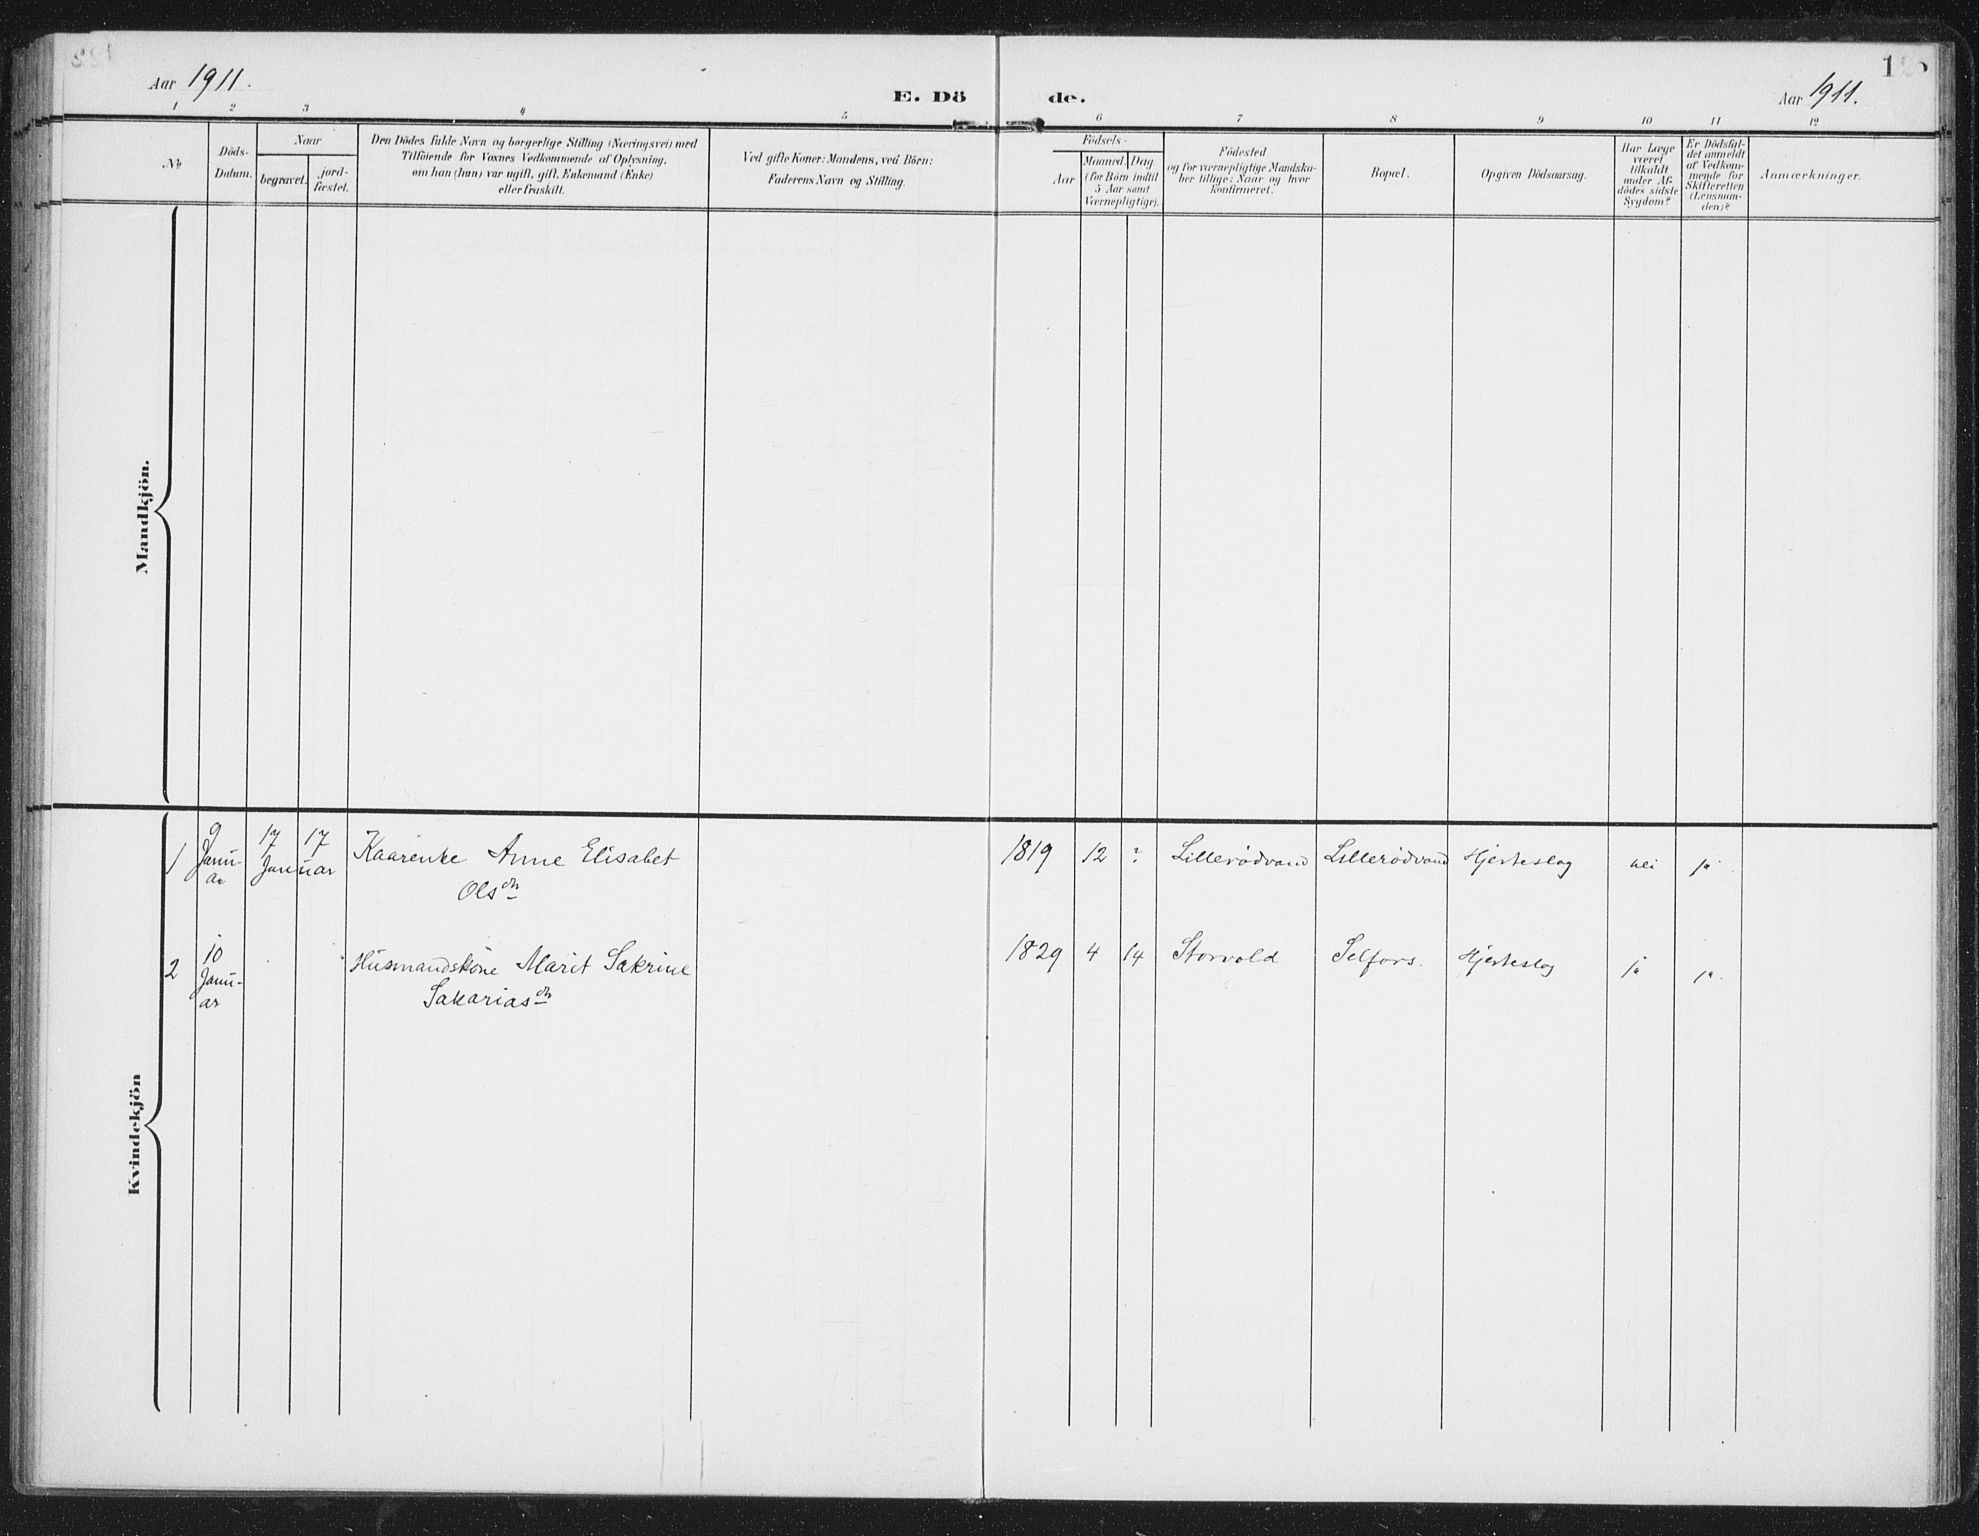 Aar 1911.
E. Dö de.
Aar 1911.
1 2 3 4 5 6 7 8 9 10 11 12
No
Döds-
Datum.
Naar
begravet.
jord-
fæstet.
Den Dödes fulde Navn og borgerlige Stilling (Næringsvei) med
Tilföiende for Voxnes Vedkommende af Oplysning,
om han (hun) var ugift, gift, Enkemand (Enke)
eller fraskilt.
Ved gifte Koner: Mandens, ved Börn:
Faderens Navn og Stilling.
Födsels-
Aar
Maaned. Dag.
(for Börn indtil
5 Aar samt
Værnepligtige).
Födested
og for værnepligtige Mandska-
ber tillige: Naar og hvor
konfirmeret.
Bopæl.
Opgiven Dödsaarsag.
Har Læge
været
tilkaldt
under Af-
dödes sidste
Sygdom?
Er Dödsfal-
det anmeldt
af Vedkom-
mende for
Skifteretten
(Lensman-
den)?
Anmærkninger.
Mandkjön.
Kvindekjön
1 9 Januar 17 17 Januar Kaarenke Anne Elisabet 1819 12 ? Lillerödvand Lillerödvand Hjerteslag nei ja
Olsdtr
2 10 Januar Husmandskone Marit Sakrine 1829 4 14 Storvold Selfors. Hjerteslag ja ja.
Sakariasdtr